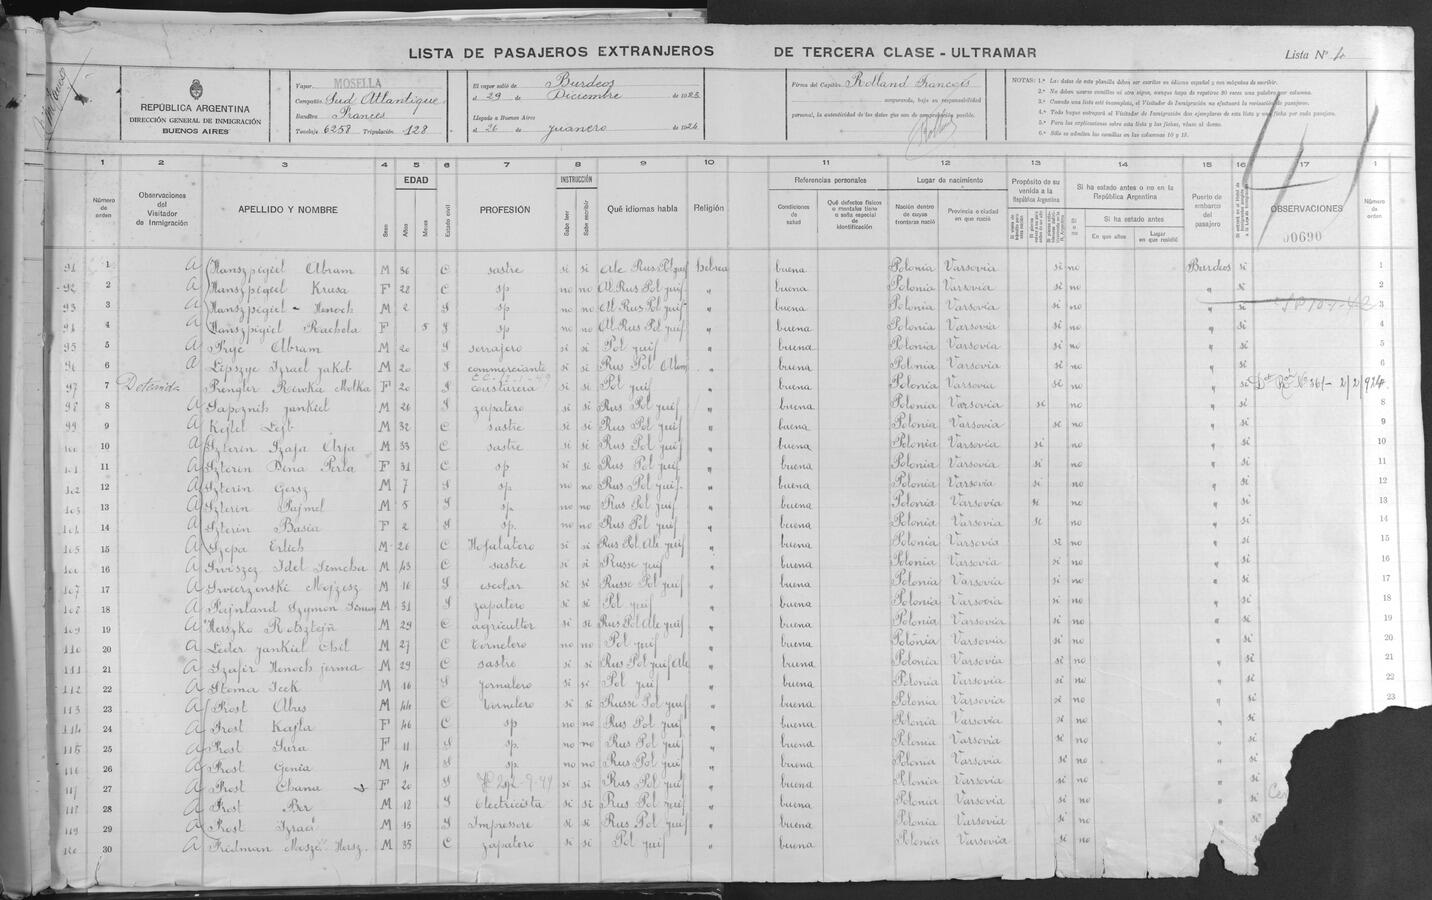 LISTA DE PASAJEROS EXTRANJEROS DE TERCERA CLASE - ULTRAMAR Lista Nº 4
REPÚBLICA ARGENTINA
DIRECCIÓN GENERAL DE INMIGRACIÓN
BUENOS AIRES
Vapor MOSELLA
Compañía Sud Atlantique
Bandera Francés
Tonelaje 6258 Tripulación 128
El vapor salió de Burdeos
el 29 de Diciembre de 1923
Llegada a Buenos Aires
el 26 de Juanero de 1924
Firma del Capitán Rolland François
comprometo, bajo su responsabilidad
personal, la autenticidad de los datos que son de comprobación posible.
NOTAS: 1.ª Los datos de esta planilla deben ser escritos en idioma español y con máquina de escribir.
2.ª No deben usarse comillas ni otro signo, aunque haya de repetirse 30 veces una palabra por columna.
3.ª Cuando una lista esté incompleta, el Visitador de Inmigración no efectuará la revisación de pasajeros.
4.ª Todo buque entregará al Visitador de Inmigración dos ejemplares de esta lista y una ficha por cada pasajero.
5.ª Para las explicaciones sobre esta lista y las fichas, véase al dorso.
6.ª Sólo se admiten las comillas en las columnas 10 y 15.
1 2 3 4 5 6 7 8 9 10 11 12 13 14 15 16 17 1
Número de orden
Observaciones del Visitador de Inmigración
APELLIDO Y NOMBRE
Sexo
EDAD
Años
Meses
Estado civil
PROFESIÓN
INSTRUCCIÓN
Sabe leer
Sabe escribir
Qué idiomas habla
Religión
Referencias personales
Condiciones de salud
Qué defectos físicos o mentales tiene o seña especial de identificación
Lugar de nacimiento
Nación dentro de cuyas fronteras nació
Provincia o ciudad en que nació
Propósito de su venida a la República Argentina
Si ha estado antes o no en la República Argentina
Si o no
Si ha estado antes
En que años
Lugar en que residió
Puerto de embarco del pasajero
OBSERVACIONES
00690
Número de orden
91 1 A Hanszpigiel Abram M 36 C sastre si si Ale Rus Pol juif hebrea buena Polonia Varsovia si no Burdeos si 1
92 2 A Hanszpigiel Krusa F 28 C sp no no Al Rus Pol juif " buena Polonia Varsovia si no " si 2
93 3 A Hanszpigiel - Henoch M 2 S sp no no Al Rus Pol juif " buena Polonia Varsovia si no " si 3
94 4 A Hanszpigiel Rachela F 5 S sp no no Al Rus Pol juif " buena Polonia Varsovia si no " si 4
95 5 A Fryc Abram M 20 S serrajero si si Pol juif " buena Polonia Varsovia si no " si 5
96 6 A Lipszyc Izrael jakob M 20 S commerciante si si Rus Pol Alem " buena Polonia Varsovia si no " si 6
97 7 Detenida Rengler Riwka Malka F 20 S costurera si si Pol juif " buena Polonia Varsovia si no " si 2/2/924 7
98 8 A Sapoznik jankiel M 26 S zapatero si si Rus Pol juif " buena Polonia Varsovia si no " si 8
99 9 A Kejtel Lejb M 32 C sastre si si Rus Pol juif " buena Polonia Varsovia si no " si 9
100 10 A Szterin Szaja Arja M 33 C sastre si si Rus Pol juif " buena Polonia Varsovia si no " si 10
101 11 A Szterin Dina Perla F 31 C sp si si Rus Pol juif " buena Polonia Varsovia si no " si 11
102 12 A Szterin Gersz M 7 S sp no no Rus Pol juif " buena Polonia Varsovia si no " si 12
103 13 A Szterin Fajmel M 5 S sp no no Rus Pol juif " buena Polonia Varsovia si no " si 13
104 14 A Szterin Basia F 2 S sp. no no Rus Pol juif " buena Polonia Varsovia si no " si 14
105 15 A Szepa Erlich M 26 C Hojalatero si si Rus Pol Ale juif " buena Polonia Varsovia si no " si 15
106 16 A Idel Simcha M 43 C sastre si si Russe juif " buena Polonia Varsovia si no " si 16
107 17 A Swierzenski Mojzesz M 16 S escolar si si Russe Pol juif " buena Polonia Varsovia si no " si 17
108 18 A Fajnland Szymon M 31 S zapatero si si Pol juif " buena Polonia Varsovia si no " si 18
109 19 A Herszko Rotsztejn M 29 C agricultor si si Rus Pol Ale juif " buena Polonia Varsovia si no " si 19
110 20 A Lider jankiel Chil M 27 C Tornelero no no Pol juif " buena Polonia Varsovia si no " si 20
111 21 A Szafir Henoch jerma M 29 C sastre si si Rus Pol juif Ale " buena Polonia Varsovia si no " si 21
112 22 A Stoma Icek M 16 S jornalero si si Pol juif " buena Polonia Varsovia si no " si 22
113 23 A Prost Abus M 44 C Tornelero si si Russe Pol juif " buena Polonia Varsovia si no " si 23
114 24 A Prost Kajla F 46 C sp no no Rus Pol juif " buena Polonia Varsovia si no " si
115 25 A Prost Sura F 11 S sp. no no Rus Pol juif " buena Polonia Varsovia si no " si
116 26 A Prost Genia M 4 S sp no no Rus Pol juif " buena Polonia Varsovia si no " si
117 27 A Prost Chana F 20 S si si Rus Pol juif " buena Polonia Varsovia si no " si
118 28 A Prost Ber M 18 S Electricista si si Rus Pol juif " buena Polonia Varsovia si no " si
119 29 A Prost Izrael M 15 S Impressore si si Rus Pol juif " buena Polonia Varsovia si no " si
120 30 A Fridman Mosze Hersz. M 35 C zapatero si si Pol juif " buena Polonia Varsovia si no " si